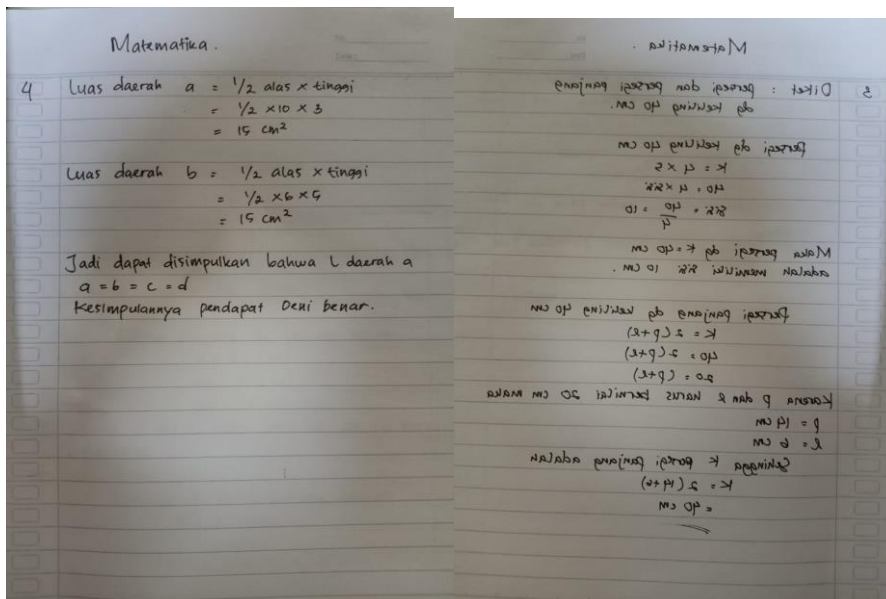 Matematika.
4
Luas daerah a = 1/2 alas x tinggi
= 1/2 x 10 x 3
= 15 cm²
Luas daerah b = 1/2 alas x tinggi
= 1/2 x 6 x 5
= 15 cm²
Jadi dapat disimpulkan bahwa L daerah a
a = b = c = d
Kesimpulannya pendapat Deni benar.
Matematika.
3
Diket : persegi dan persegi panjang
dg keliling 40 cm.
Persegi dg keliling 40 cm
K = 4 x s
40 = 4 x sisi
sisi = 40/4 = 10
Maka persegi dg K = 40 cm
adalah memiliki sisi 10 cm.
Persegi panjang dg keliling 40 cm
K = 2 (p+l)
40 = 2 (p+l)
20 = (p+l)
Karena p dan l harus bernilai 20 cm maka
p = 14 cm
l = 6 cm
Sehingga K persegi panjang adalah
K = 2 (14+6)
= 40 cm